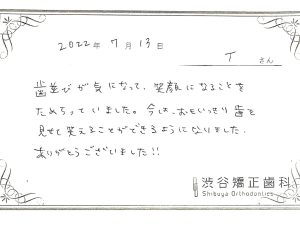 2022年 7月 13日
T さん
歯並びが気になって、笑顔になることを
ためらっていました。今は、おもいっきり歯を
見せて笑えることができるようになりました。
ありがとうございました!!
渋谷矯正歯科
Shibuya Orthodontics